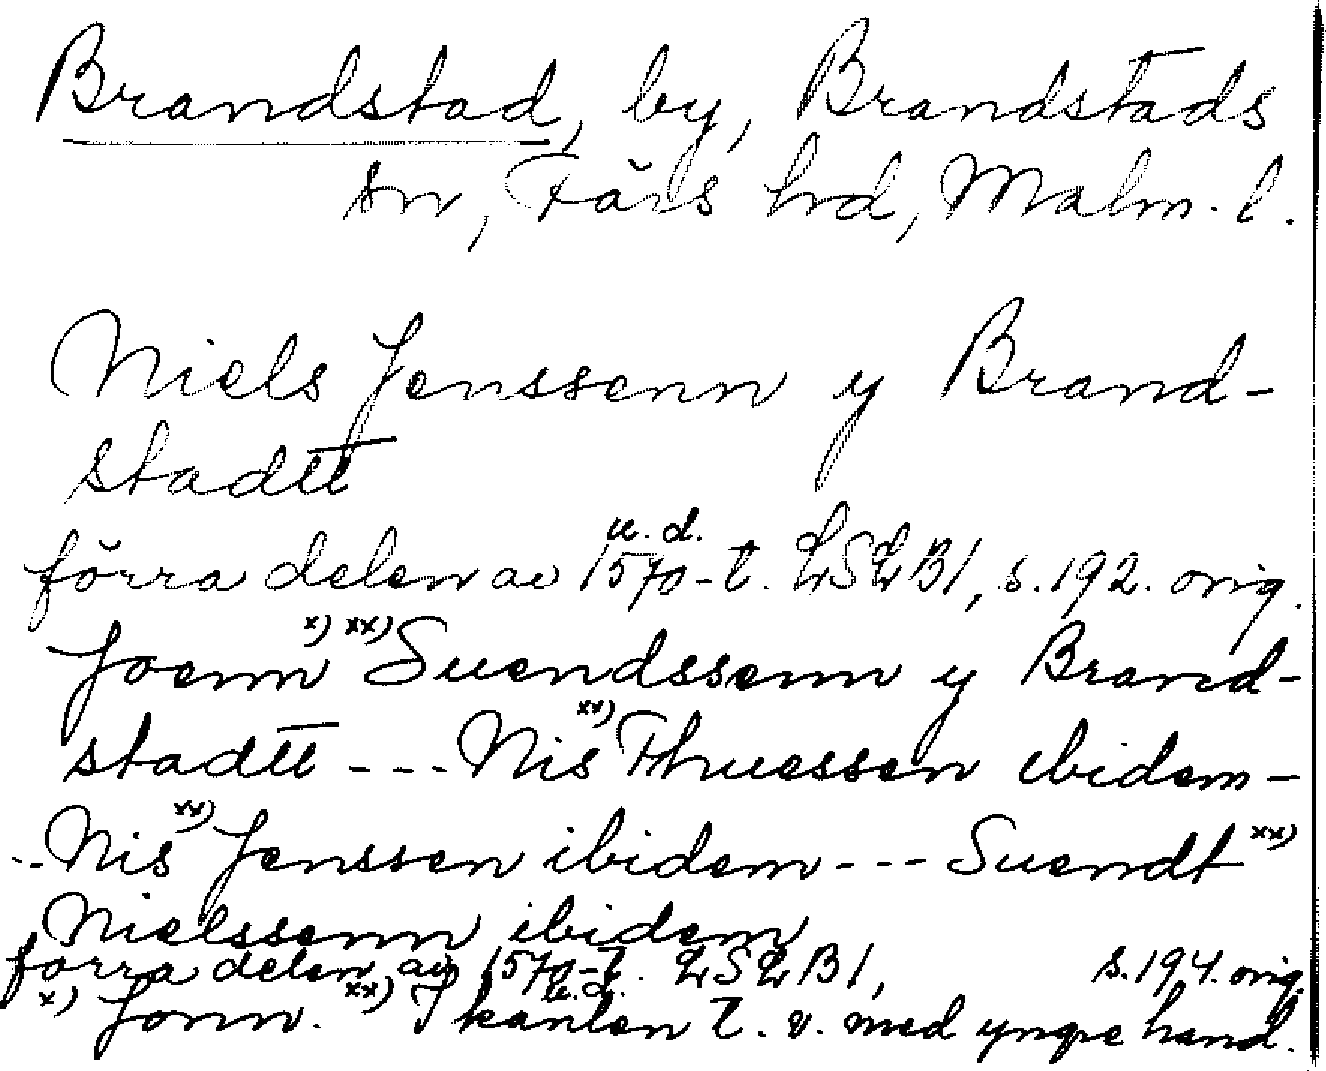 Brandstad, by, Brandstads
sn, Färs hrd, Malm. l.
Niels Jenssenn y Brand-
stadtt
u. d.
förra delen av 1570-t. LSLB1, s. 192. orig.
Joenn x) xx) Suendssenn y Brand-
stadtt --- Nis xx) Thruessen ibidem -
-- Nis xx) Jenssen ibidem --- Suendt xx)
Nielssenn ibidem
förra delen av 1570-t. LSLB1, s. 194. orig.
u. d.
x) Jonn. xx) I kanten t. v. med yngre hand.